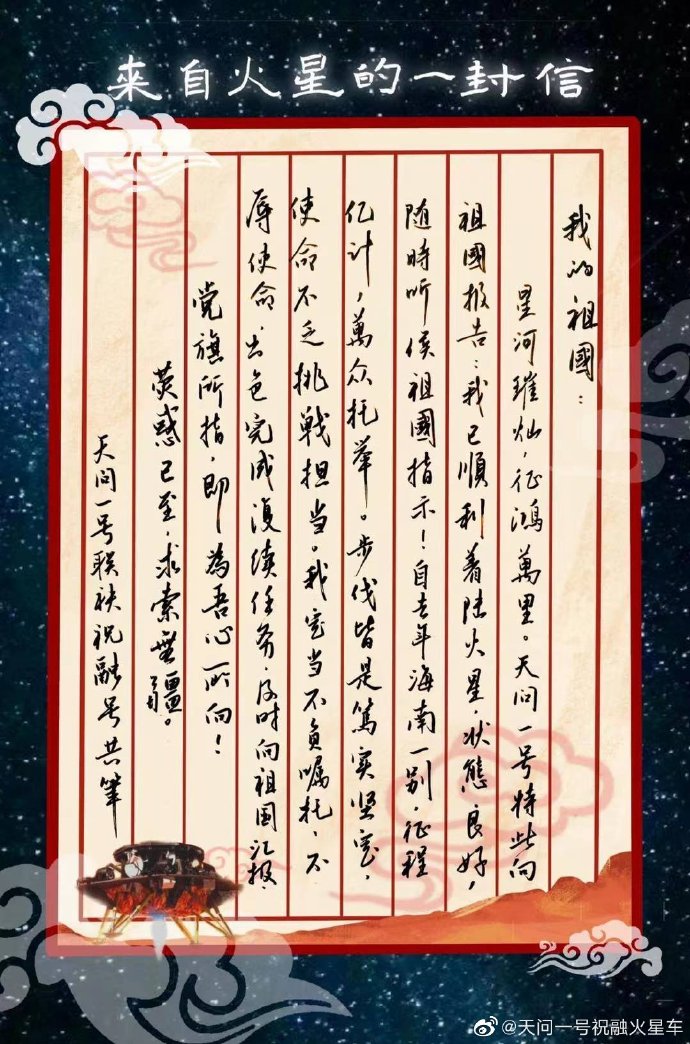 來自火星的一封信
我的祖國：
星河璀灿，征鴻萬里。天问一号特此向
祖國报告：我已順利着陆火星，状態良好，
随時听候祖國指示！自去年海南一别，征程
亿计，萬众托举。步伐皆是篤实坚定，
使命不乏挑戦担当。我定当不负嘱托、不
辱使命，出色完成後续任务，及时向祖国汇报
党旗所指，即為吾心所向！
荧惑已至，求索無疆。
天问一号联袂祝融号共筆
@天问一号祝融火星车